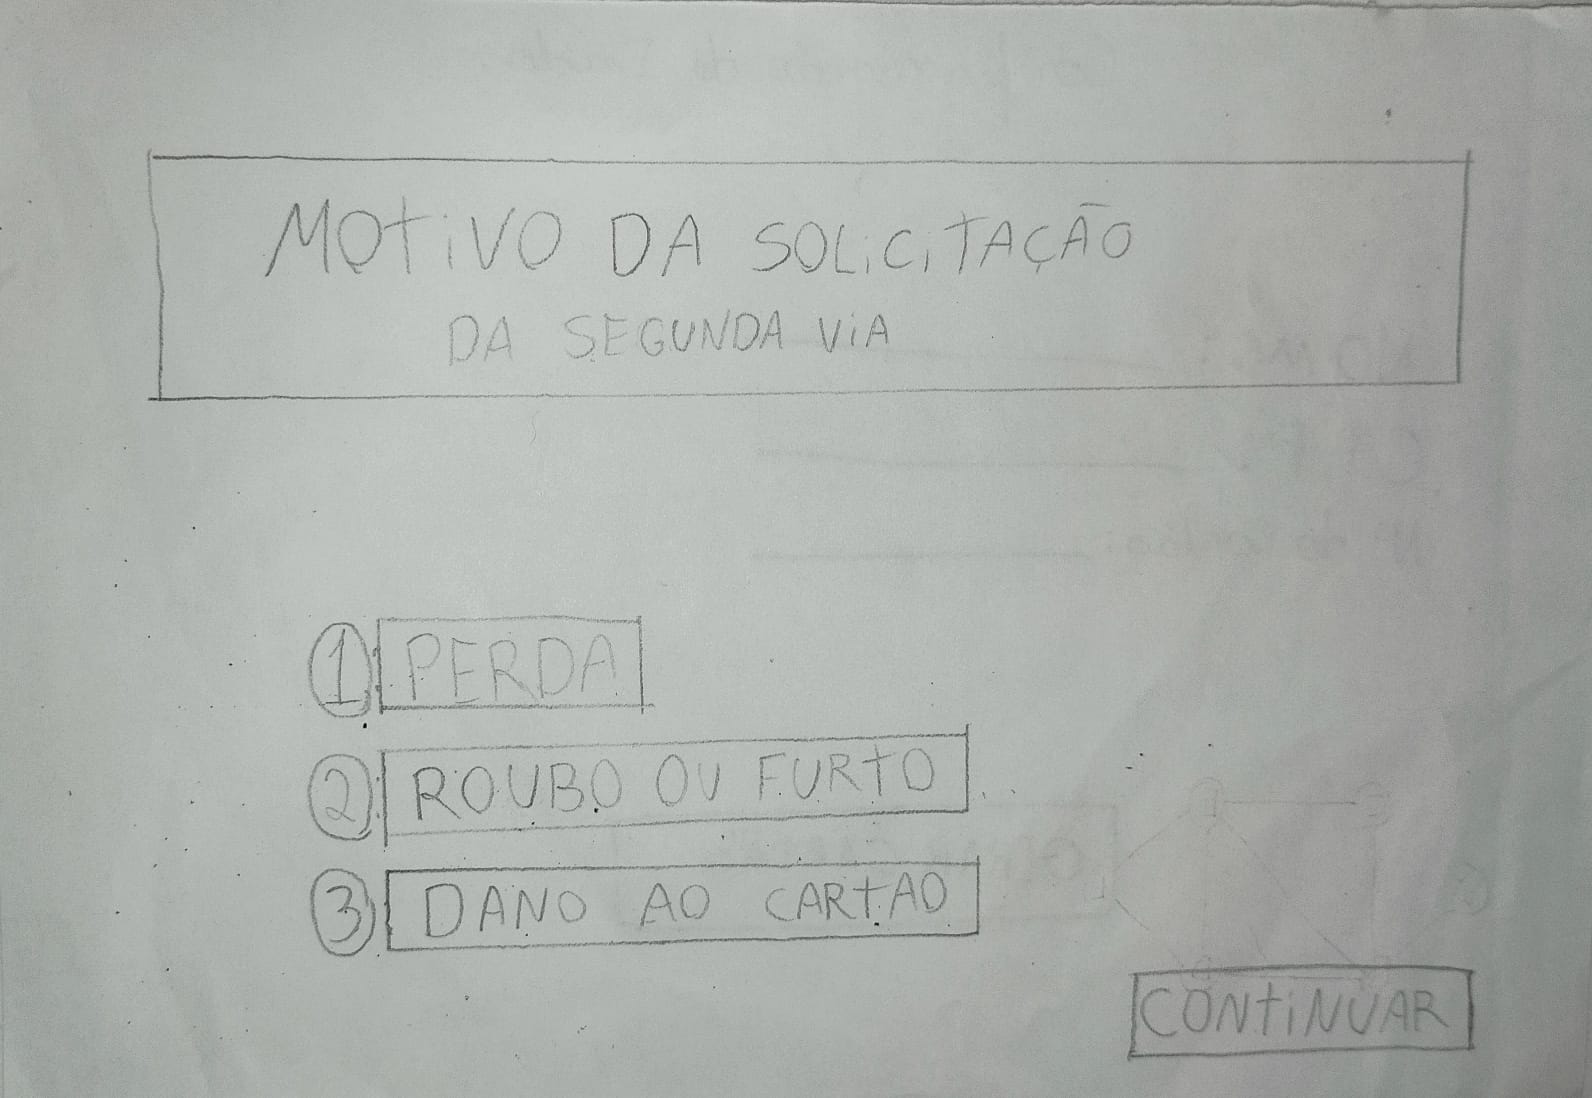 MOTIVO DA SOLICITAÇÃO
DA SEGUNDA VIA
1 PERDA
2 ROUBO OU FURTO
3 DANO AO CARTAO
CONTINUAR